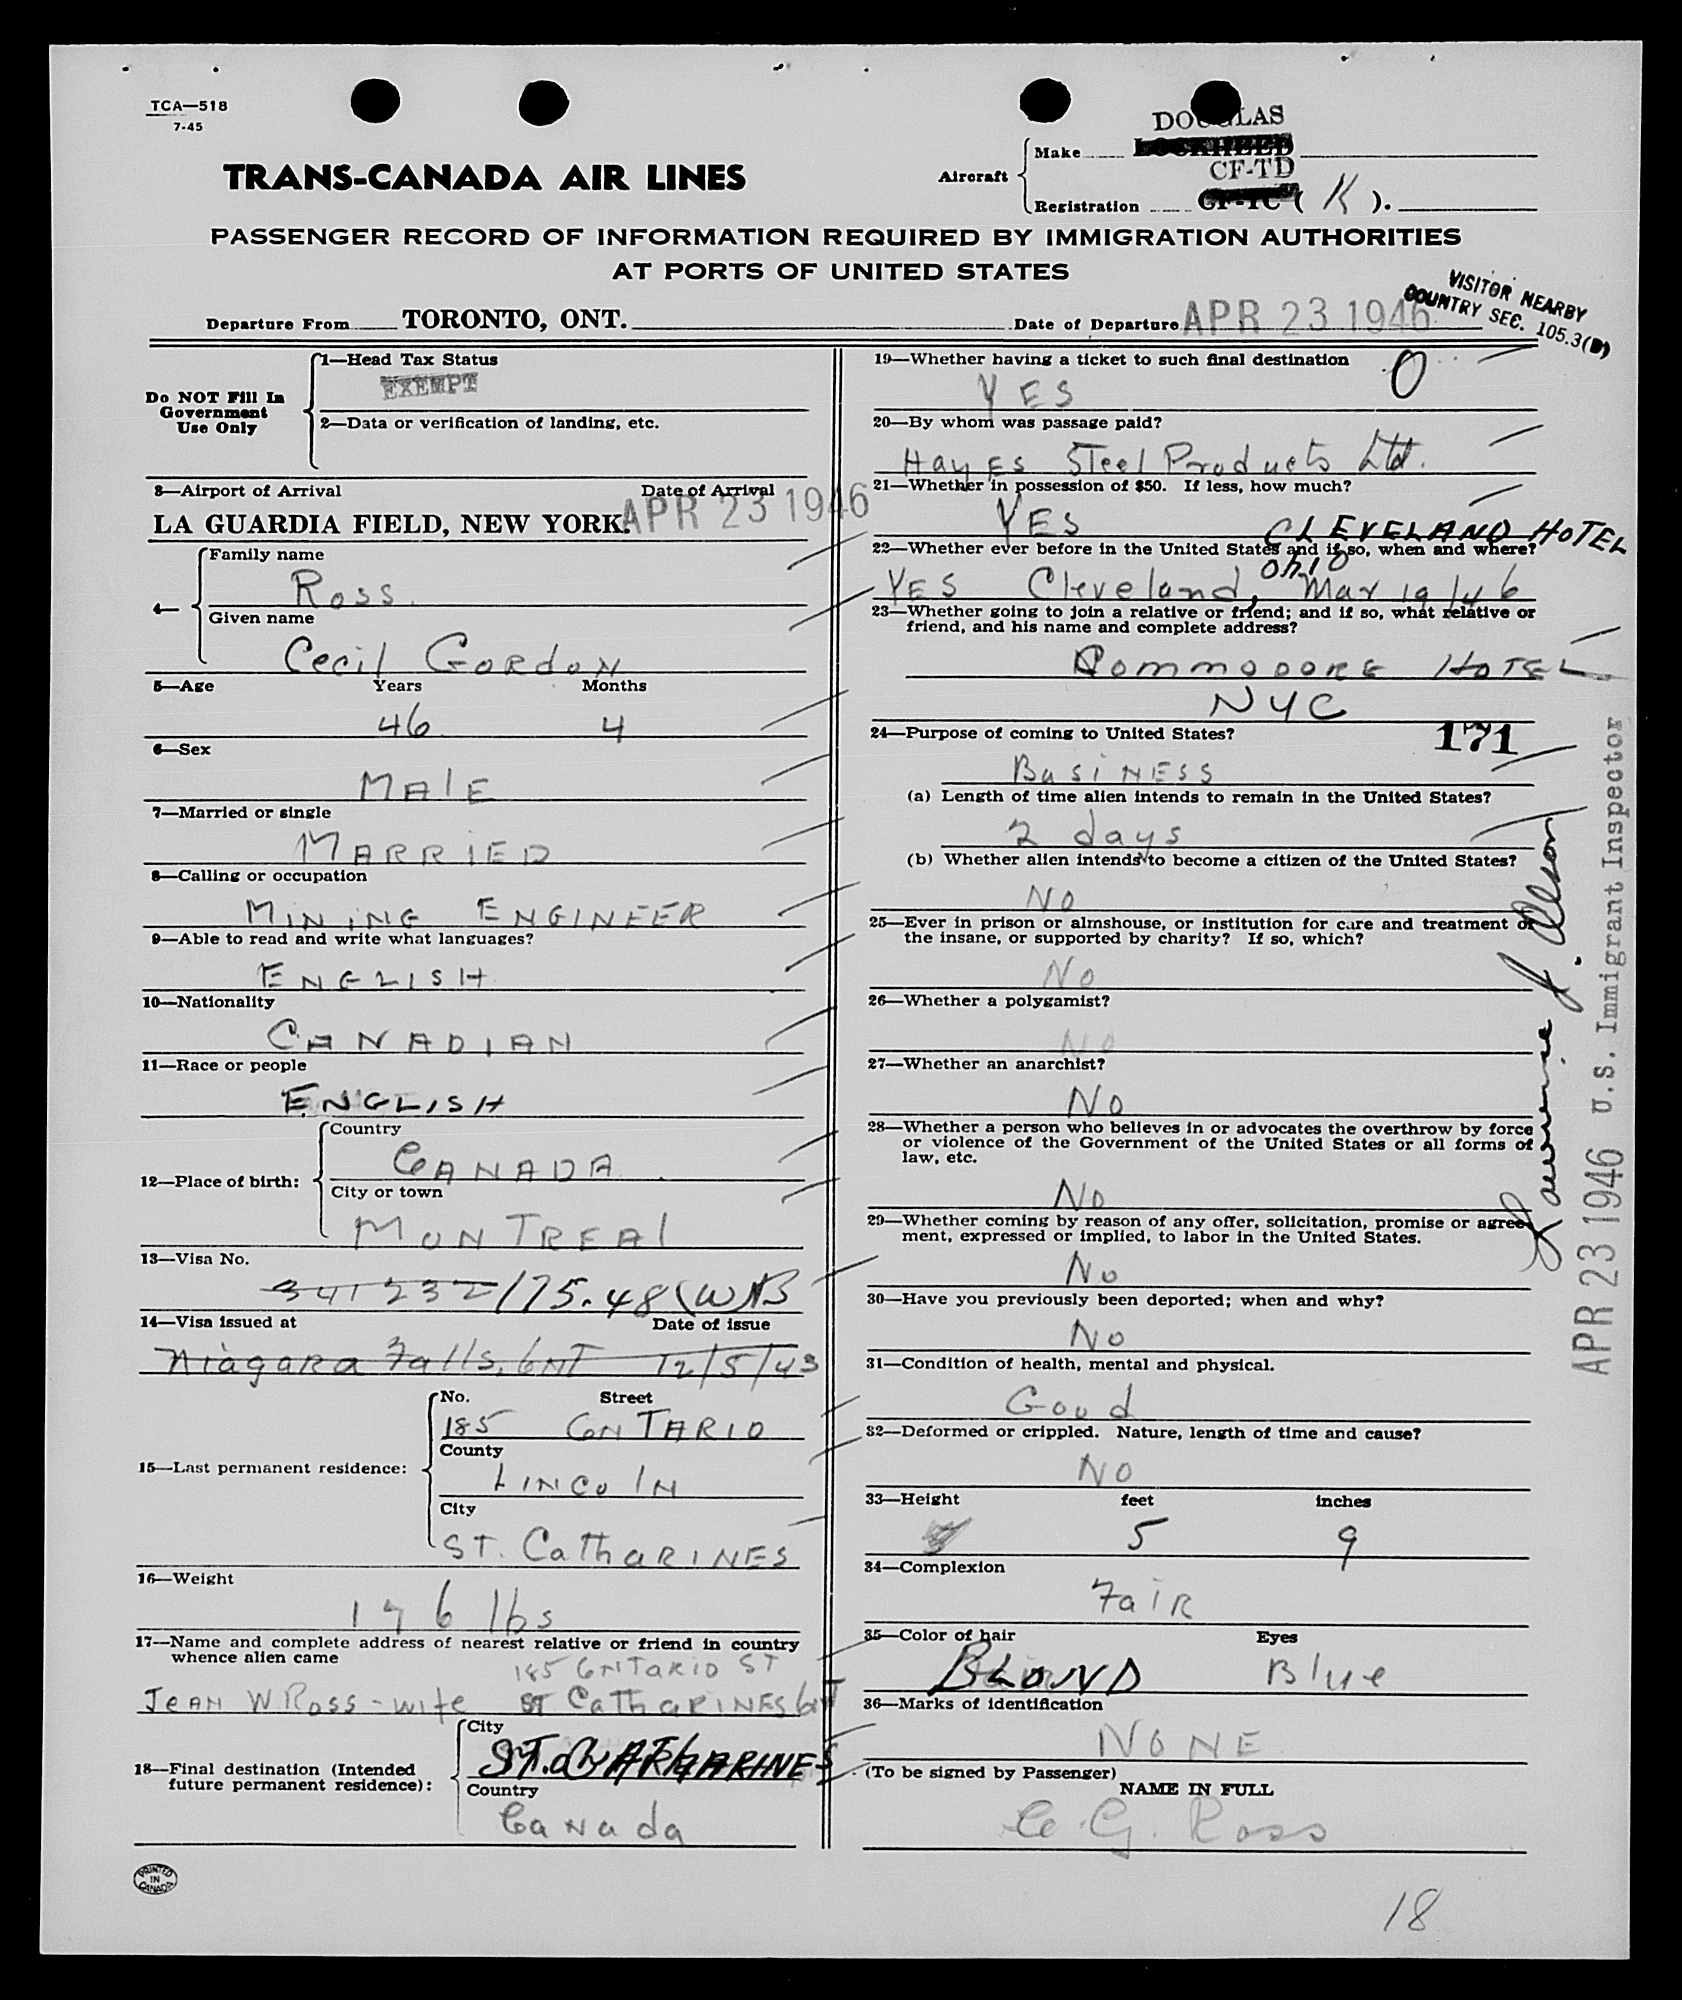 TCA—518
7-45
TRANS-CANADA AIR LINES
Aircraft
Make
DOUGLAS
LOCKHEED
CF-TD
Registration CF-TC ( K ).
PASSENGER RECORD OF INFORMATION REQUIRED BY IMMIGRATION AUTHORITIES
AT PORTS OF UNITED STATES
VISITOR NEARBY
COUNTRY SEC. 105.3(D)
Departure From TORONTO, ONT.
Date of Departure APR 23 1946
Do NOT Fill In
Government
Use Only
1—Head Tax Status
EXEMPT
2—Data or verification of landing, etc.
3—Airport of Arrival Date of Arrival
LA GUARDIA FIELD, NEW YORK. APR 23 1946
4—
Family name
Ross
Given name
Cecil GORDON
5—Age Years Months
46 4
6—Sex
MALE
7—Married or single
MARRIED
8—Calling or occupation
MINING ENGINEER
9—Able to read and write what languages?
ENGLISH
10—Nationality
CANADIAN
11—Race or people
ENGLISH
12—Place of birth:
Country
CANADA
City or town
MONTREAl
13—Visa No.
341232 175.48 (WAB
14—Visa issued at Date of issue
Niagara Falls, ONT 12/5/43
15—Last permanent residence:
No. Street
185 ONTARIO
County
LINCOLN
City
ST. CaThaRINES
16—Weight
146 lbs
17—Name and complete address of nearest relative or friend in country
whence alien came
185 ONTaRIO ST
JEAN W Ross - wife ST CaThaRINES ONT
18—Final destination (Intended
future permanent residence):
City
ST. CATHARINES
Country
CaNada
PRINTED
IN
CANADA
19—Whether having a ticket to such final destination
YES
O
20—By whom was passage paid?
HayEs STeel Products Ltd.
21—Whether in possession of $50. If less, how much?
YES
CLEVELAND HOTEL
22—Whether ever before in the United States and if so, when and where?
OhIO
YES Cleveland, Mar 19/46
23—Whether going to join a relative or friend; and if so, what relative or
friend, and his name and complete address?
COMMODORE HOTEL
NYC
24—Purpose of coming to United States?
171
BusiNESS
(a) Length of time alien intends to remain in the United States?
2 days
(b) Whether alien intends to become a citizen of the United States?
No
25—Ever in prison or almshouse, or institution for care and treatment of
the insane, or supported by charity? If so, which?
No
26—Whether a polygamist?
No
27—Whether an anarchist?
No
28—Whether a person who believes in or advocates the overthrow by force
or violence of the Government of the United States or all forms of
law, etc.
No
29—Whether coming by reason of any offer, solicitation, promise or agree-
ment, expressed or implied, to labor in the United States.
No
30—Have you previously been deported; when and why?
No
31—Condition of health, mental and physical.
Good
32—Deformed or crippled. Nature, length of time and cause?
No
33—Height feet inches
5 9
34—Complexion
FaIR
35—Color of hair Eyes
BLOND Blue
36—Marks of identification
NONE
(To be signed by Passenger)
NAME IN FULL
C. G. Ross
18
APR 23 1946 U.S. Immigrant Inspector